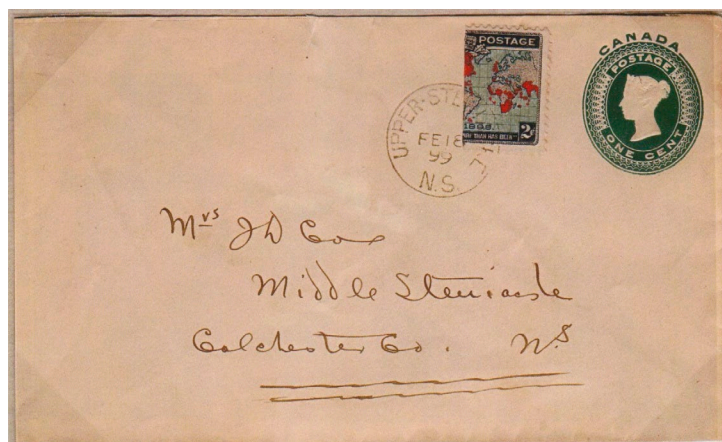 CANADA
POSTAGE
ONE CENT
POSTAGE
1898
2¢
UPPER-STE
FE 18
99
N.S.
Mrs J D Cox
Middle Stewiacke
Colchester Co. NS